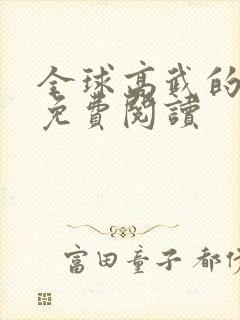 全球高武的
免費閱讀
富田童子 都伏